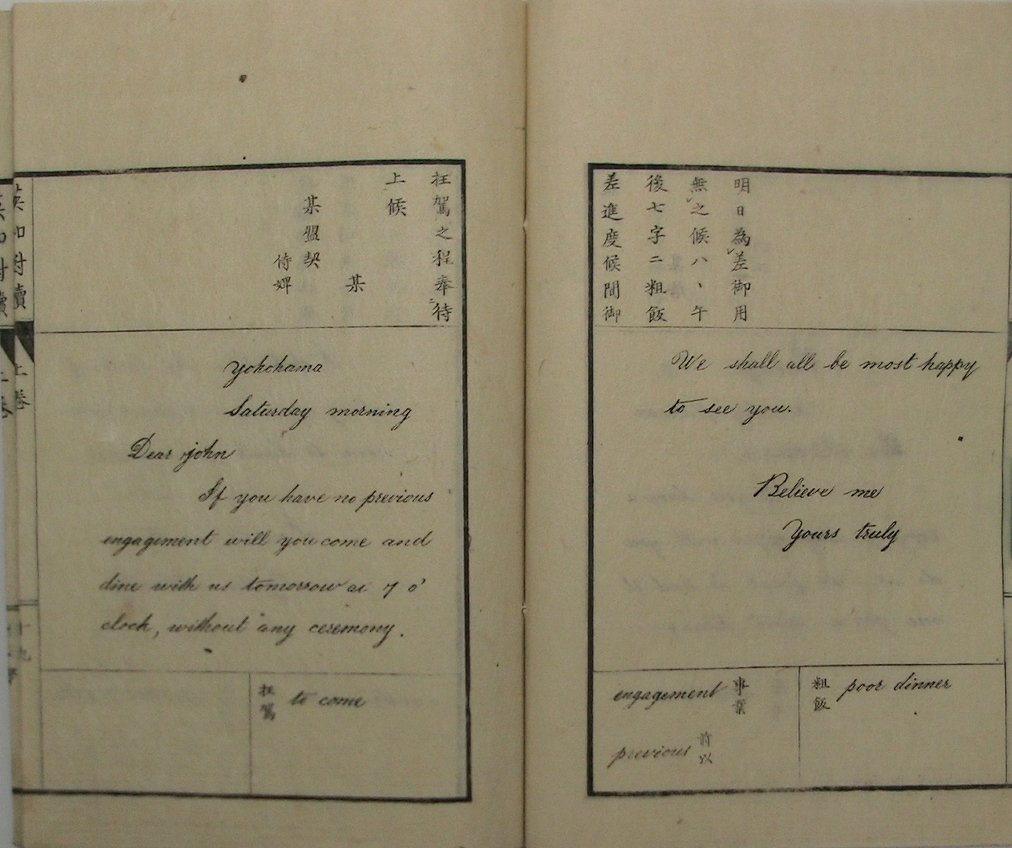 明日為差御用
無之候ハヽ午
後七字ニ粗飯
差進度候間御
枉駕之程奉待
上候
某
某盟契
侍婢
Yokohama
Saturday morning
Dear john
If you have no previous
engagement will you come and
dine with us tomorrow at 7 o'
clock, without any ceremony.
枉駕 to come
We shall all be most happy
to see you.
Believe me
Yours truly
engagement 事業
previous 前以
粗飯 poor dinner
英和対牘
上巻
十九